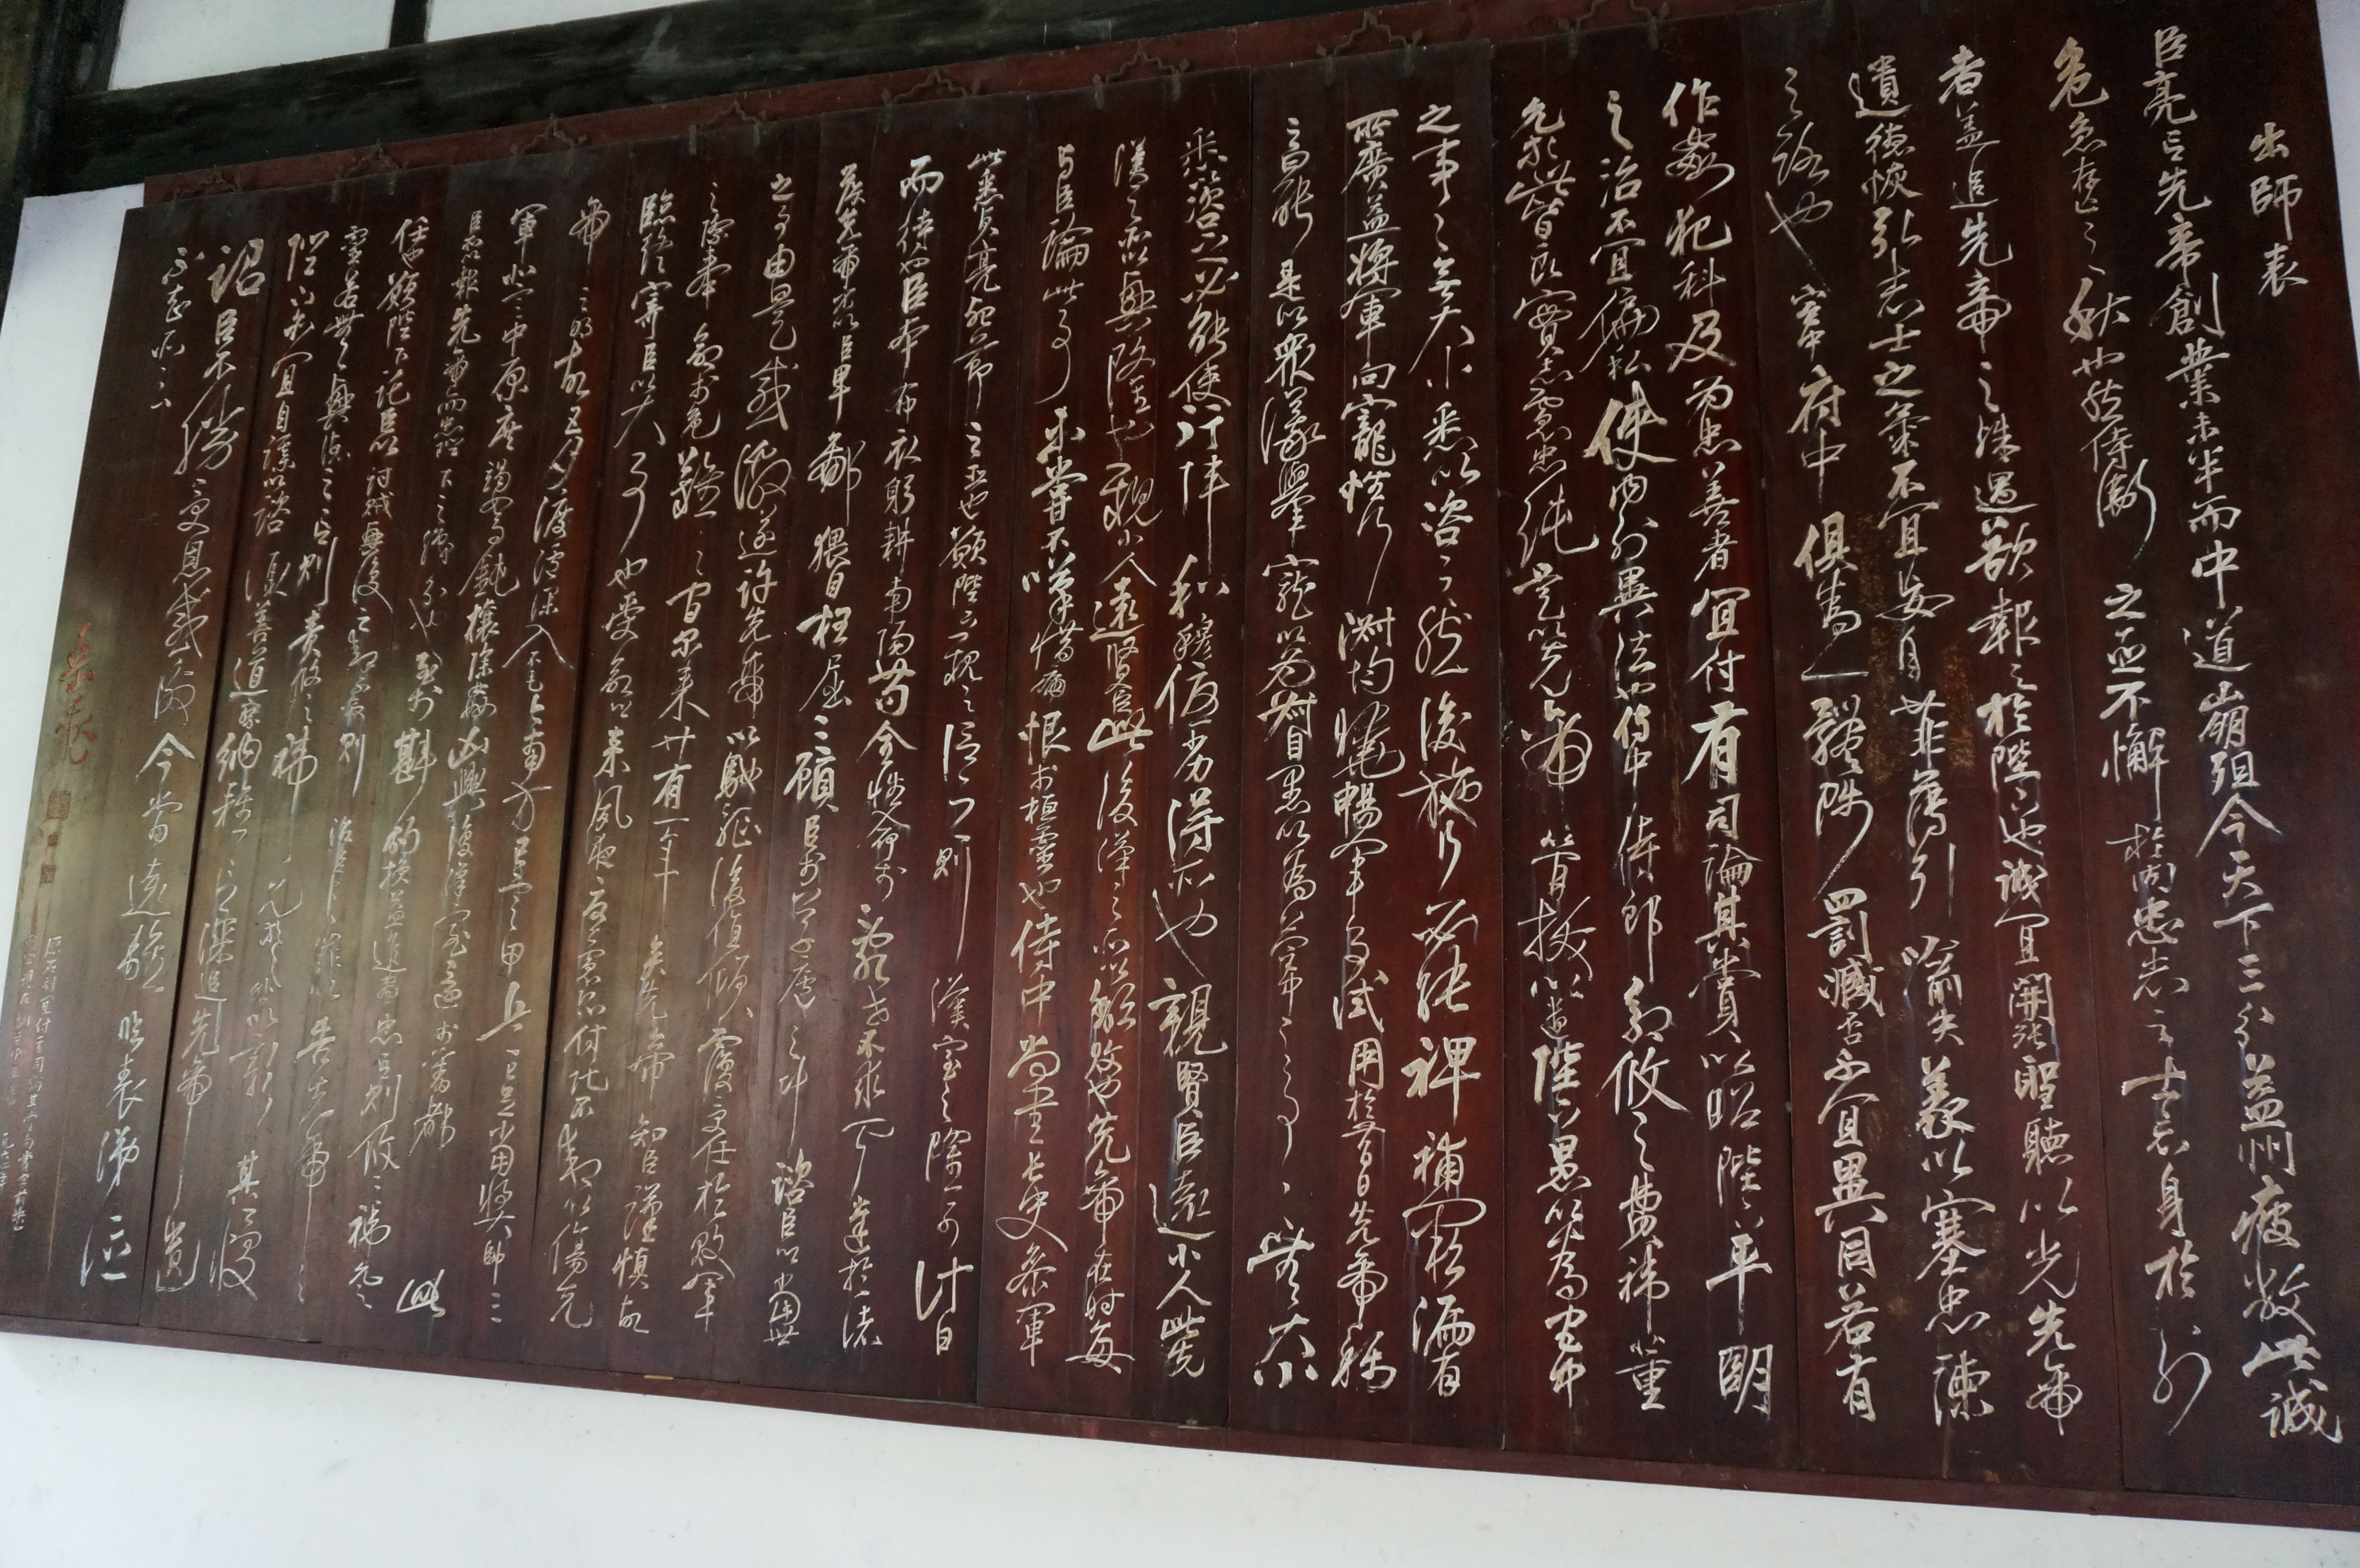 出師表
臣亮言先帝創業未半而中道崩殂今天下三分益州疲敝此誠
危急存亡之秋也然侍衛之臣不懈於內忠志之士忘身於外
者蓋追先帝之殊遇欲報之於陛下也誠宜開張聖聽以光先帝
遺德恢弘志士之氣不宜妄自菲薄引喻失義以塞忠諫
之路也宮中府中俱為一體陟罰臧否不宜異同若有
作姦犯科及為忠善者宜付有司論其刑賞以昭陛下平明
之治不宜偏私使內外異法也侍中侍郎郭攸之費禕董
允等此皆良實志慮忠純是以先帝簡拔以遺陛下愚以為宮中
之事事無大小悉以咨之然後施行必能裨補闕漏有
所廣益將軍向寵性行淑均曉暢軍事試用於昔日先帝稱
之曰能是以眾議舉寵以為督愚以為營中之事事無大小
悉以咨之必能使行陣和穆優劣得所也親賢臣遠小人此先
漢之所以興隆也親小人遠賢臣此後漢之所以傾敗也先帝在時每
與臣論此事未嘗不嘆惜痛恨於桓靈也侍中尚書長史參軍
此悉貞亮死節之臣也願陛下親之信之則漢室之隆可計日
而待也臣本布衣躬耕南陽苟全性命於亂世不求聞達於諸
侯先帝不以臣卑鄙猥自枉屈三顧臣於草廬之中諮臣以當世
之事由是感激遂許先帝以驅馳後值傾覆受任於敗軍
之際奉命於危難之間爾來廿有一年矣先帝知臣謹慎故
臨終寄臣以大事也受命以來夙夜憂慮恐付託不效以傷先
帝之明故五月渡瀘深入不毛今南方已定甲兵已足當獎帥三
軍北定中原庶竭駑鈍攘除姦凶興復漢室還於舊都此
臣所以報先帝而忠陛下之職分也至於斟酌損益進盡忠言則攸之禕允之
任也願陛下託臣以討賊興復之效不效則治臣之罪以告先帝之
靈若無興德之言則責攸之禕允等咎以彰其慢
陛下亦宜自謀以諮諏善道察納雅言深追先帝遺
詔臣不勝受恩感激今當遠離臨表涕泣
不知所云
岳飛